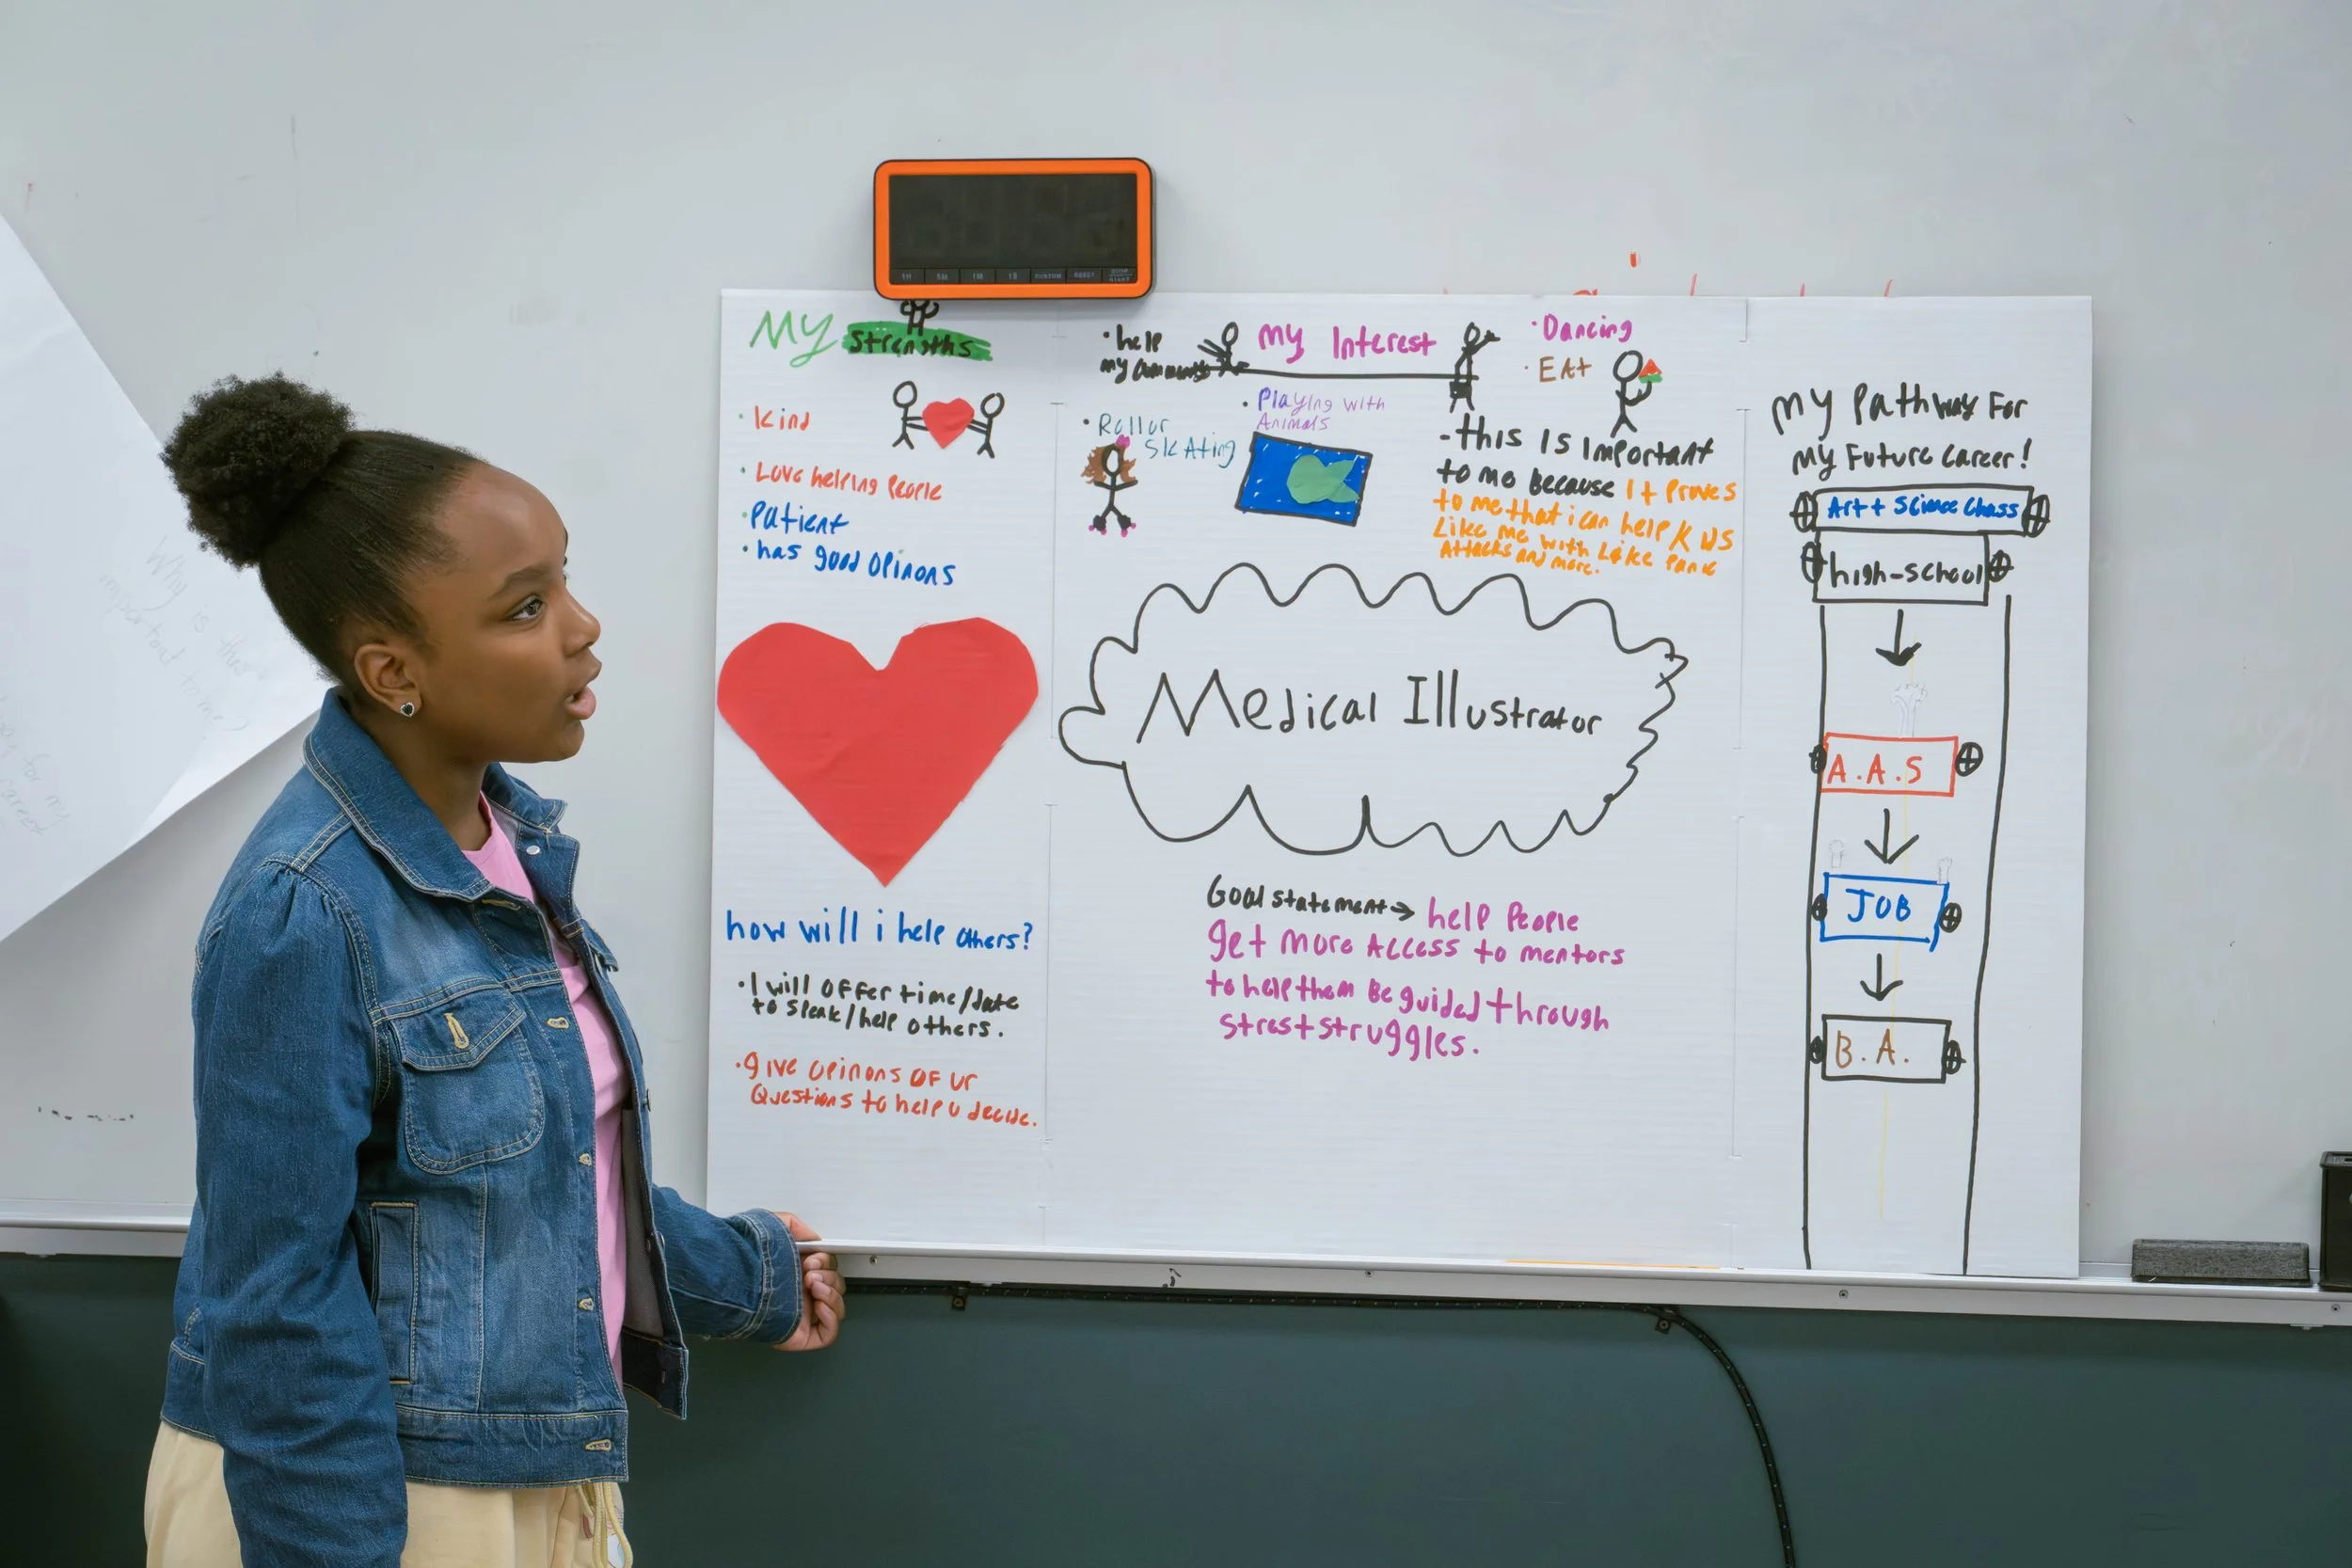 My Strengths
• Kind
• Love helping People
• Patient
• has good opinons
how will i help others?
• I will offer time/date
to speak/help others.
• give opinons of ur
Questions to help u decide.
• help
my
My Interest
• Dancing
• EAt
• Rollar
Skating
• Playing with
Animals
- this is important
to me because it Proves
to me that i can help kids
Like me with Like Panic
Attacks and more.
Medical Illustrator
Goal statement → help People
get more Access to mentors
to help them Be guided through
struggles.
My Pathway For
My Future Career!
Art + Science Class
high-school
A.A.S
JOB
B.A.
Why is this
important to me?